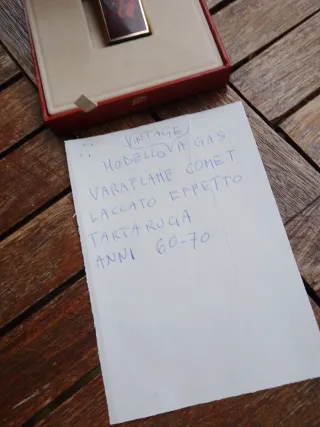 VINTAGE
MODELLO A GAS
VARAFLAME COMET
LACCATO EFFETTO
TARTARUGA
ANNI 60-70